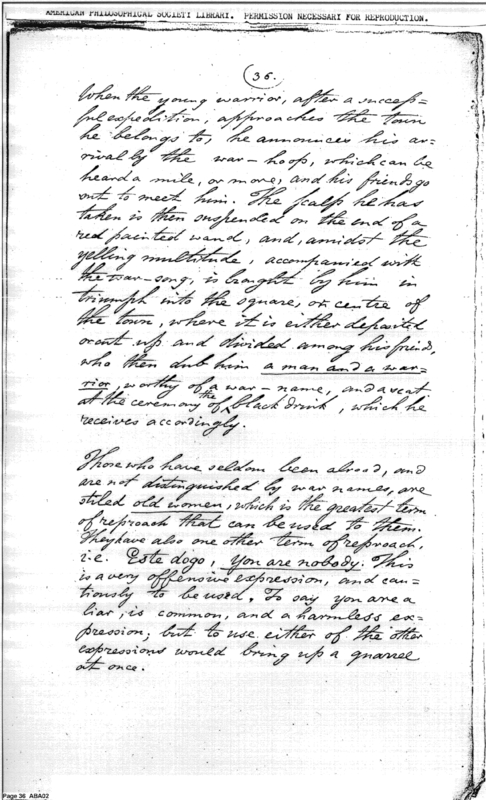 AMERICAN PHILOSOPHICAL SOCIETY LIBRARY. PERMISSION NECESSARY FOR REPRODUCTION.
36.
When the young warrior, after a success=
ful expedition, approaches the town
he belongs to, he announces his ar=
rival by the war-hoop, which can be
heard a mile, or more, and his friends go
out to meet him. The scalp he has
taken is then suspended on the end of a
red painted wand, and, amidst the
yelling multitude, accompanied with
the war-song, is brought by him in
triumph into the square, or centre of
the town, where it is either deposited
or cut up and divided among his friends,
who then dub him a man and a war-
rior, worthy of a war-name, and a seat
at the ceremony of the black drink, which he
receives accordingly.
Those who have seldom been abroad, and
are not distinguished by war names, are
stiled old women, which is the greatest term
of reproach that can be used to them.
They have also one other term of reproach,
i.e. Este dogo, you are nobody. This
is a very offensive expression, and cau=
tiously to be used. To say you are a
liar, is common, and a harmless ex=
pression; but to use either of the other
expressions would bring up a quarrel
at once.
Page 36 ABA02